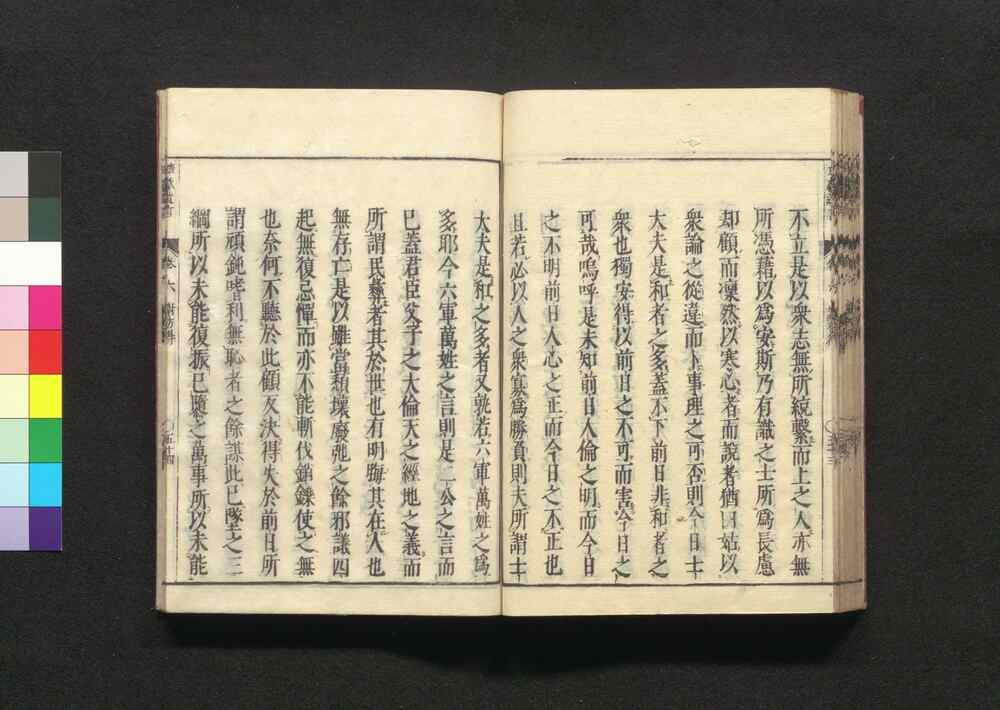 不立是以衆志無所統繫而上之人亦無
所憑藉以爲安斯乃有識之士所爲長慮
却顧而凜然以寒心者而說者猶曰姑以
衆論之從違而卜事理之可否則今日士
大夫是和者之多蓋不下前日非和者之
衆也獨安得以前日之不可而害今日之
可哉嗚呼是未知前日人倫之明而今日
之不明前日人心之正而今日之不正也
且若必以人之衆寡爲勝負則夫所謂士
大夫是和之多者又孰若六軍萬姓之爲
多耶今六軍萬姓之言則是二公之言而
已蓋君臣父子之大倫天之經地之義而
所謂民彝者其於世也有明晦其在人也
無存亡是以雖當頽壞廢弛之餘邪議四
起無復忌憚而亦不能斬伐銷鑠使之無
也奈何不聽於此顧反決得失於前日所
謂頑鈍嗜利無恥者之餘謀此已墜之三
綱所以未能復振已隳之萬事所以未能
卷六
五十四